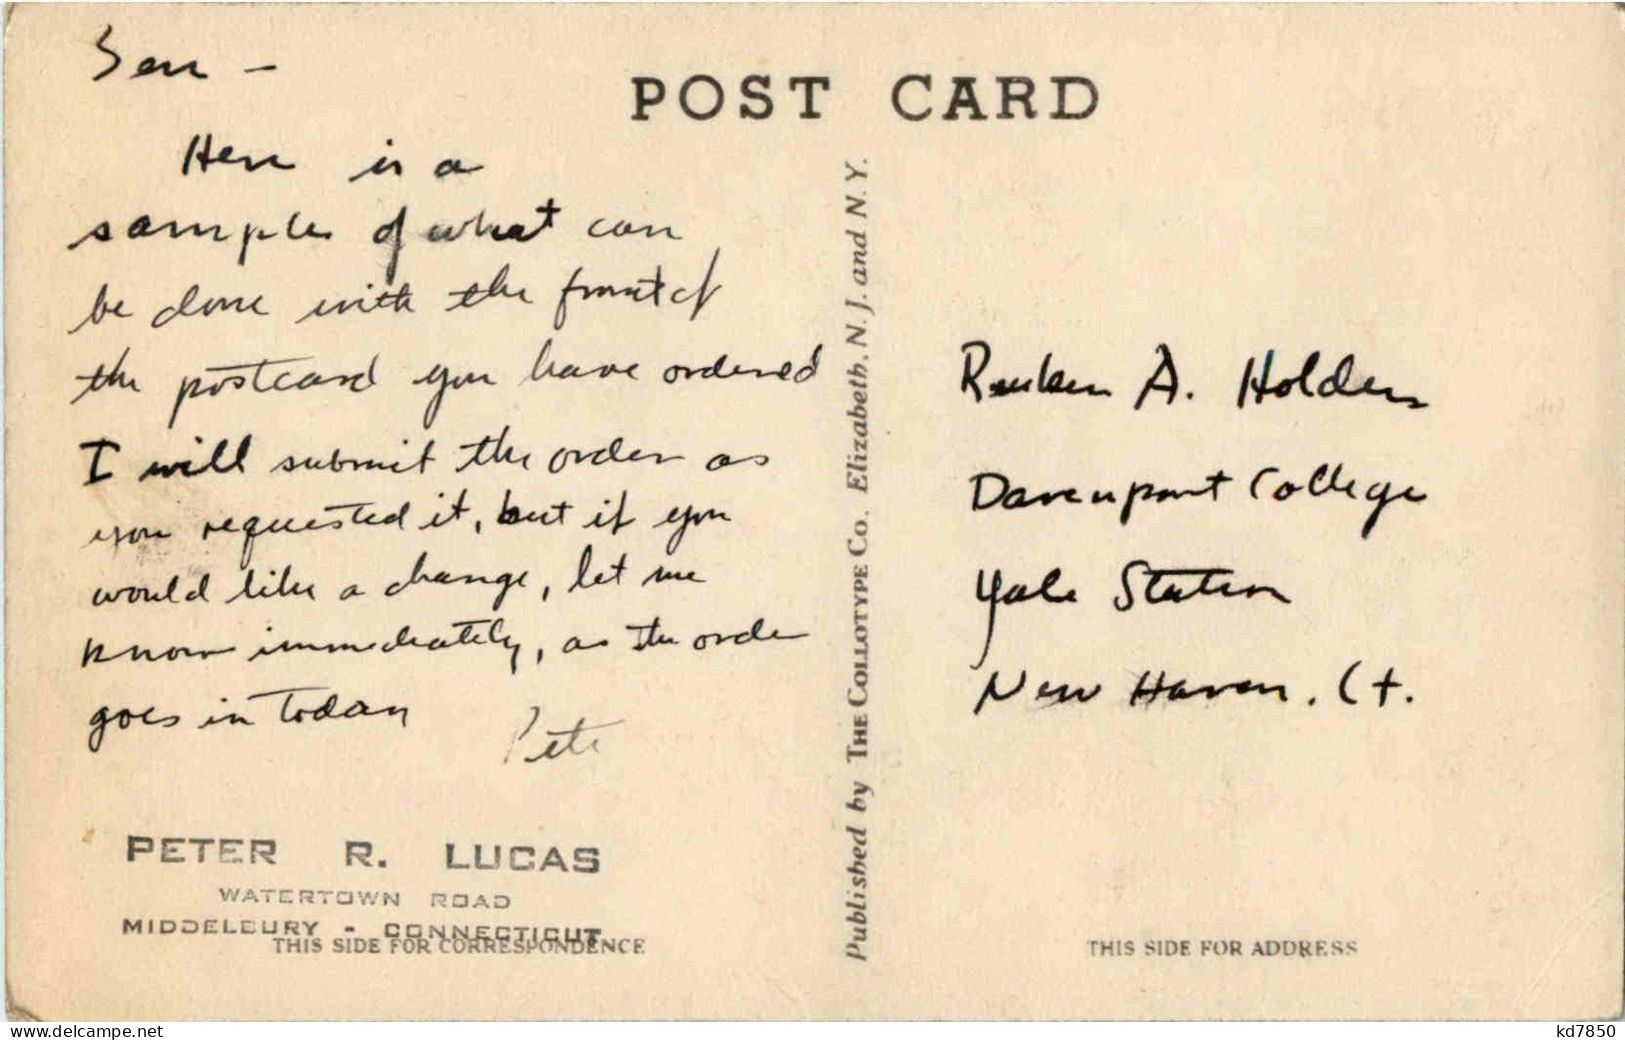 Sen -
Here is a
sample of what can
be done with the front of
the postcard you have ordered
I will submit the order as
you requested it, but if you
would like a change, let me
know immediately, as the order
goes in today
Pete
PETER R. LUCAS
WATERTOWN ROAD
MIDDLEBURY - CONNECTICUT
THIS SIDE FOR CORRESPONDENCE
POST CARD
Published by THE COLLOTYPE CO. Elizabeth, N. J. and N. Y.
Reuben A. Holden
Davenport College
Yale Station
New Haven, Ct.
THIS SIDE FOR ADDRESS
www.delcampe.net
kd7850